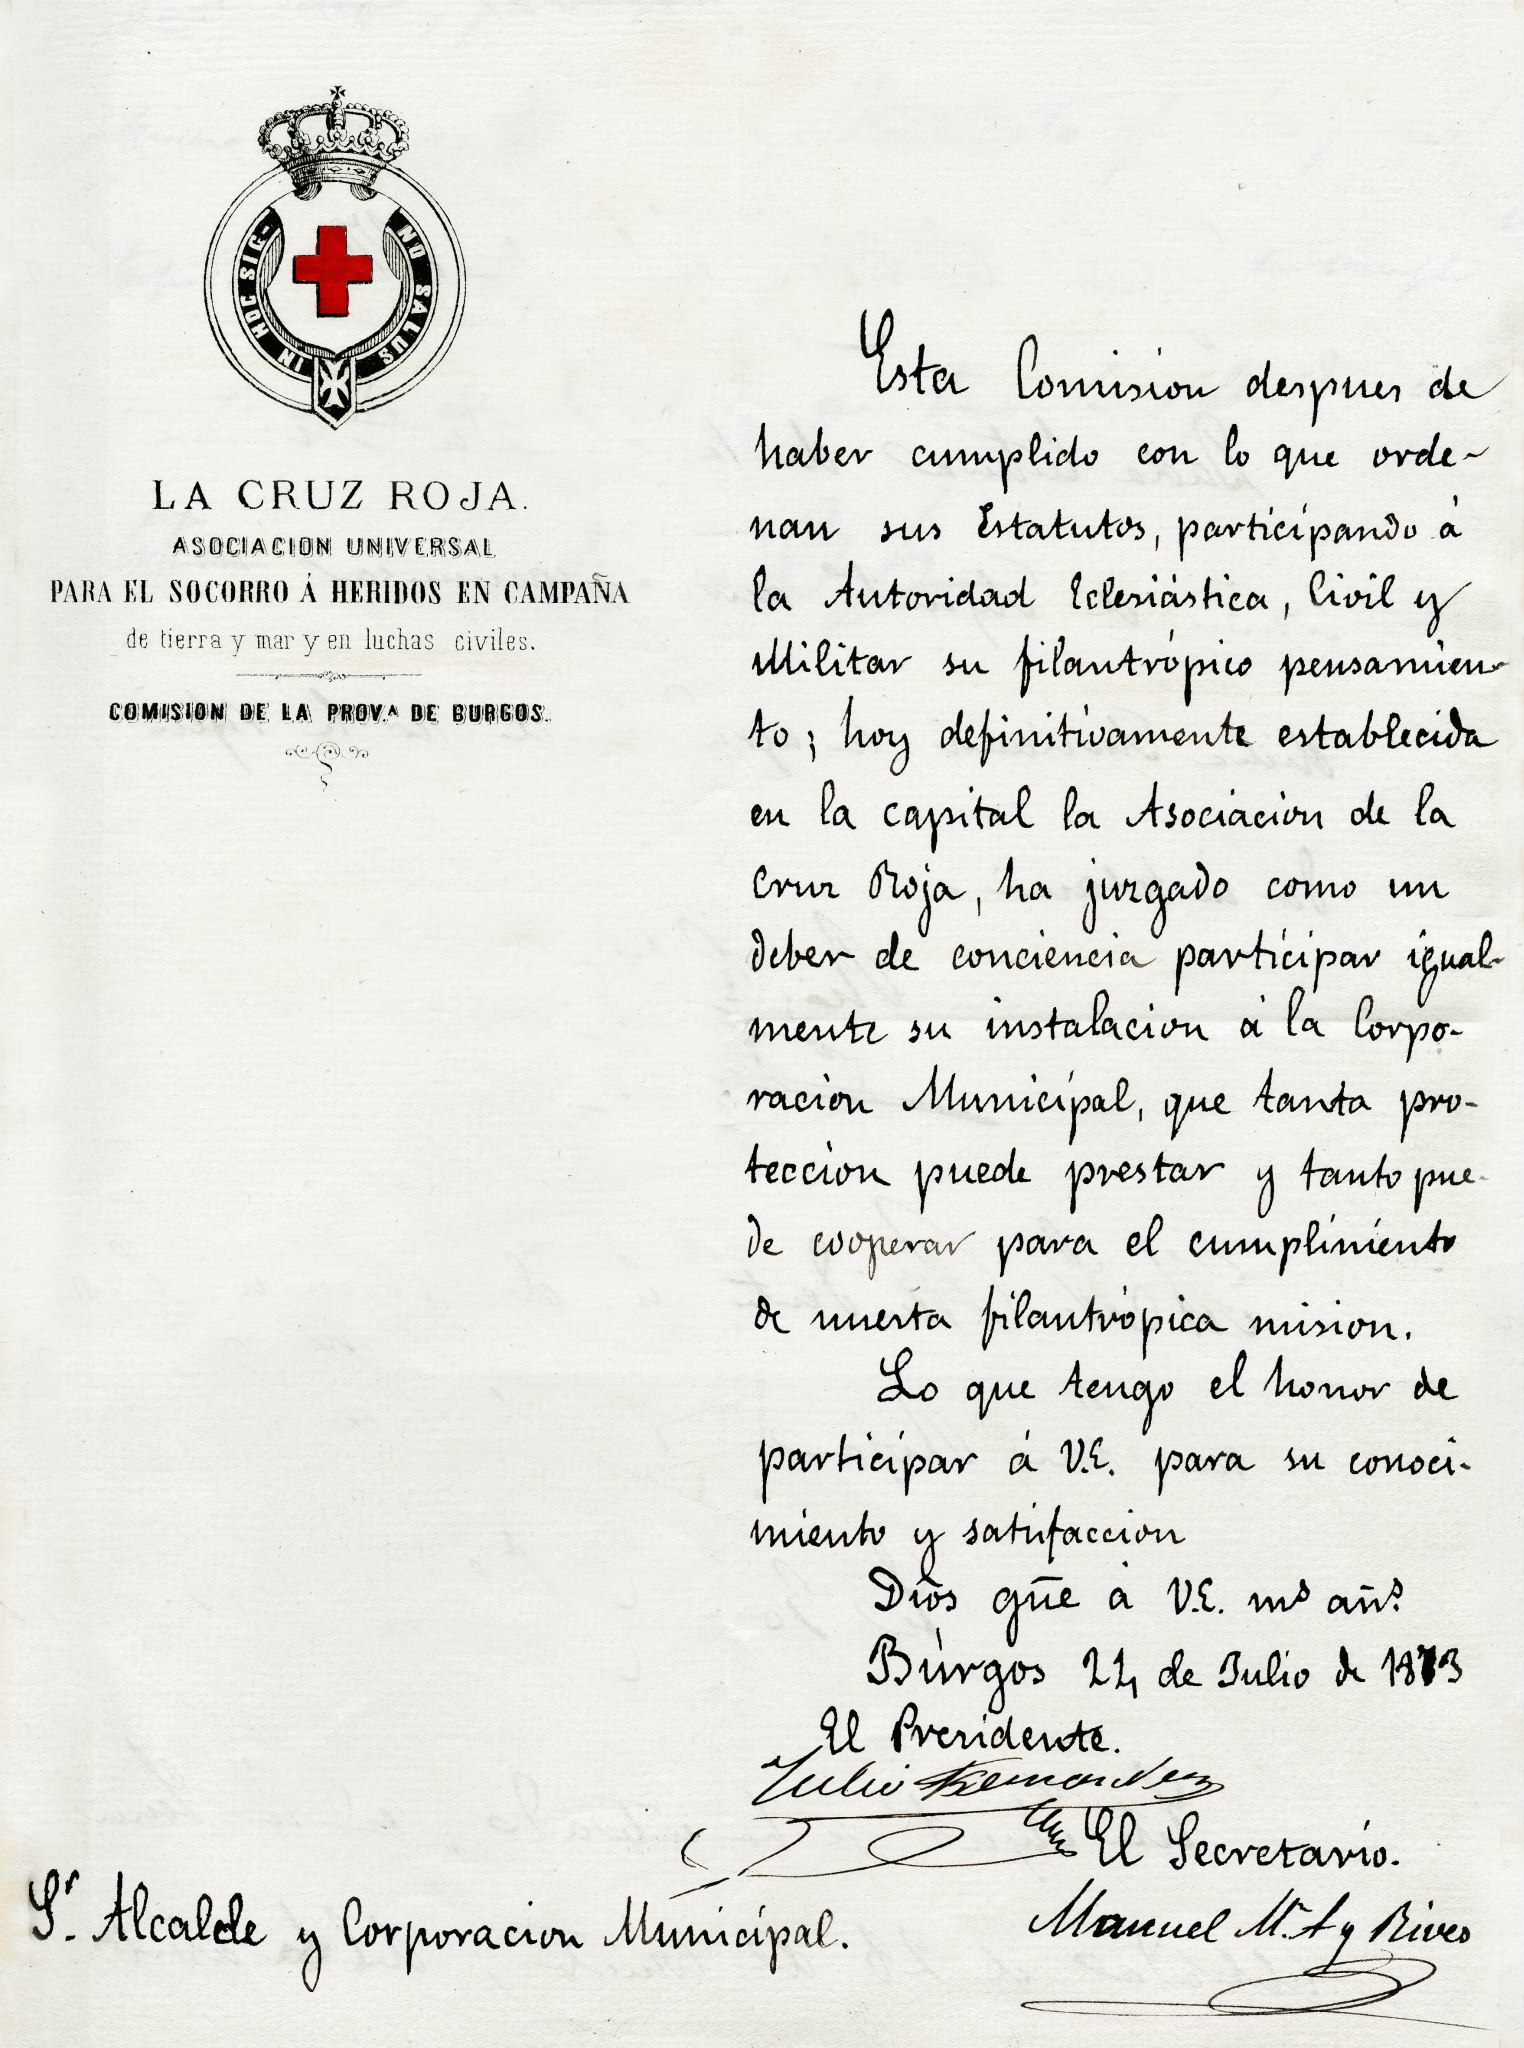 IN HOC SIG-
NO SALUS
LA CRUZ ROJA.
ASOCIACION UNIVERSAL
PARA EL SOCORRO Á HERIDOS EN CAMPAÑA
de tierra y mar y en luchas civiles.
COMISION DE LA PROV.ᴬ DE BURGOS.
Esta Comision despues de
haber cumplido con lo que orde-
nan sus Estatutos, participando á
la Autoridad Eclesiástica, Civil y
Militar su filantrópico pensamien-
to; hoy definitivamente establecida
en la capital la Asociacion de la
Cruz Roja, ha juzgado como un
deber de conciencia participar igual-
mente su instalacion á la Corpo-
racion Municipal, que tanta pro-
teccion puede prestar y tanto pue-
de cooperar para el cumplimiento
de nuesta filantrópica mision.
Lo que tengo el honor de
participar á V.E. para su conoci-
miento y satisfaccion
Dios gu̅e á V.E. mˢ añˢ.
Búrgos 24 de Julio de 1873
El Presidente.
Julio Fernandez
El Secretario.
Manuel M. A y Rives
Sʳ. Alcalde y Corporacion Municipal.